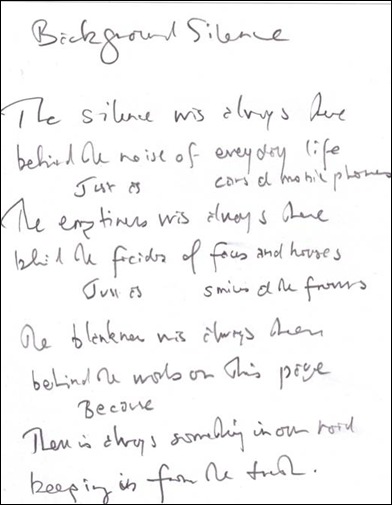 Background Silence
The silence was always there
behind the noise of everyday life
Just as cars d mobile phones
The emptiness was always there
behind the facades of faces and houses
Just as smiles d the frowns
The blankness was always there
behind the words on this page
Because
There is always something in our
keeping us from the truth.